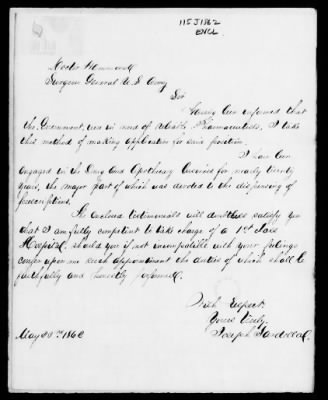 115 J 1862
ENCL
Doctor Hammond
Surgeon General U S Army
Sir
Having been informed that
the Government, was in need of Reliable Pharmaceutists, I take
this method of making application for same position.
I have been
engaged in the Drug and Apothecary Business for nearly twenty
years, the major part of which was devoted to the dispensing of
prescriptions.
The enclosed testimonials will doubtless satisfy you
that I am fully competent to take charge of a 1st class
Hospital. should you if not incompatible with your feelings
confer upon me such appointment the duties of which shall be
faithfully and honestly performed.
With Respect
Yours Truly
Joseph
May 30th 1862